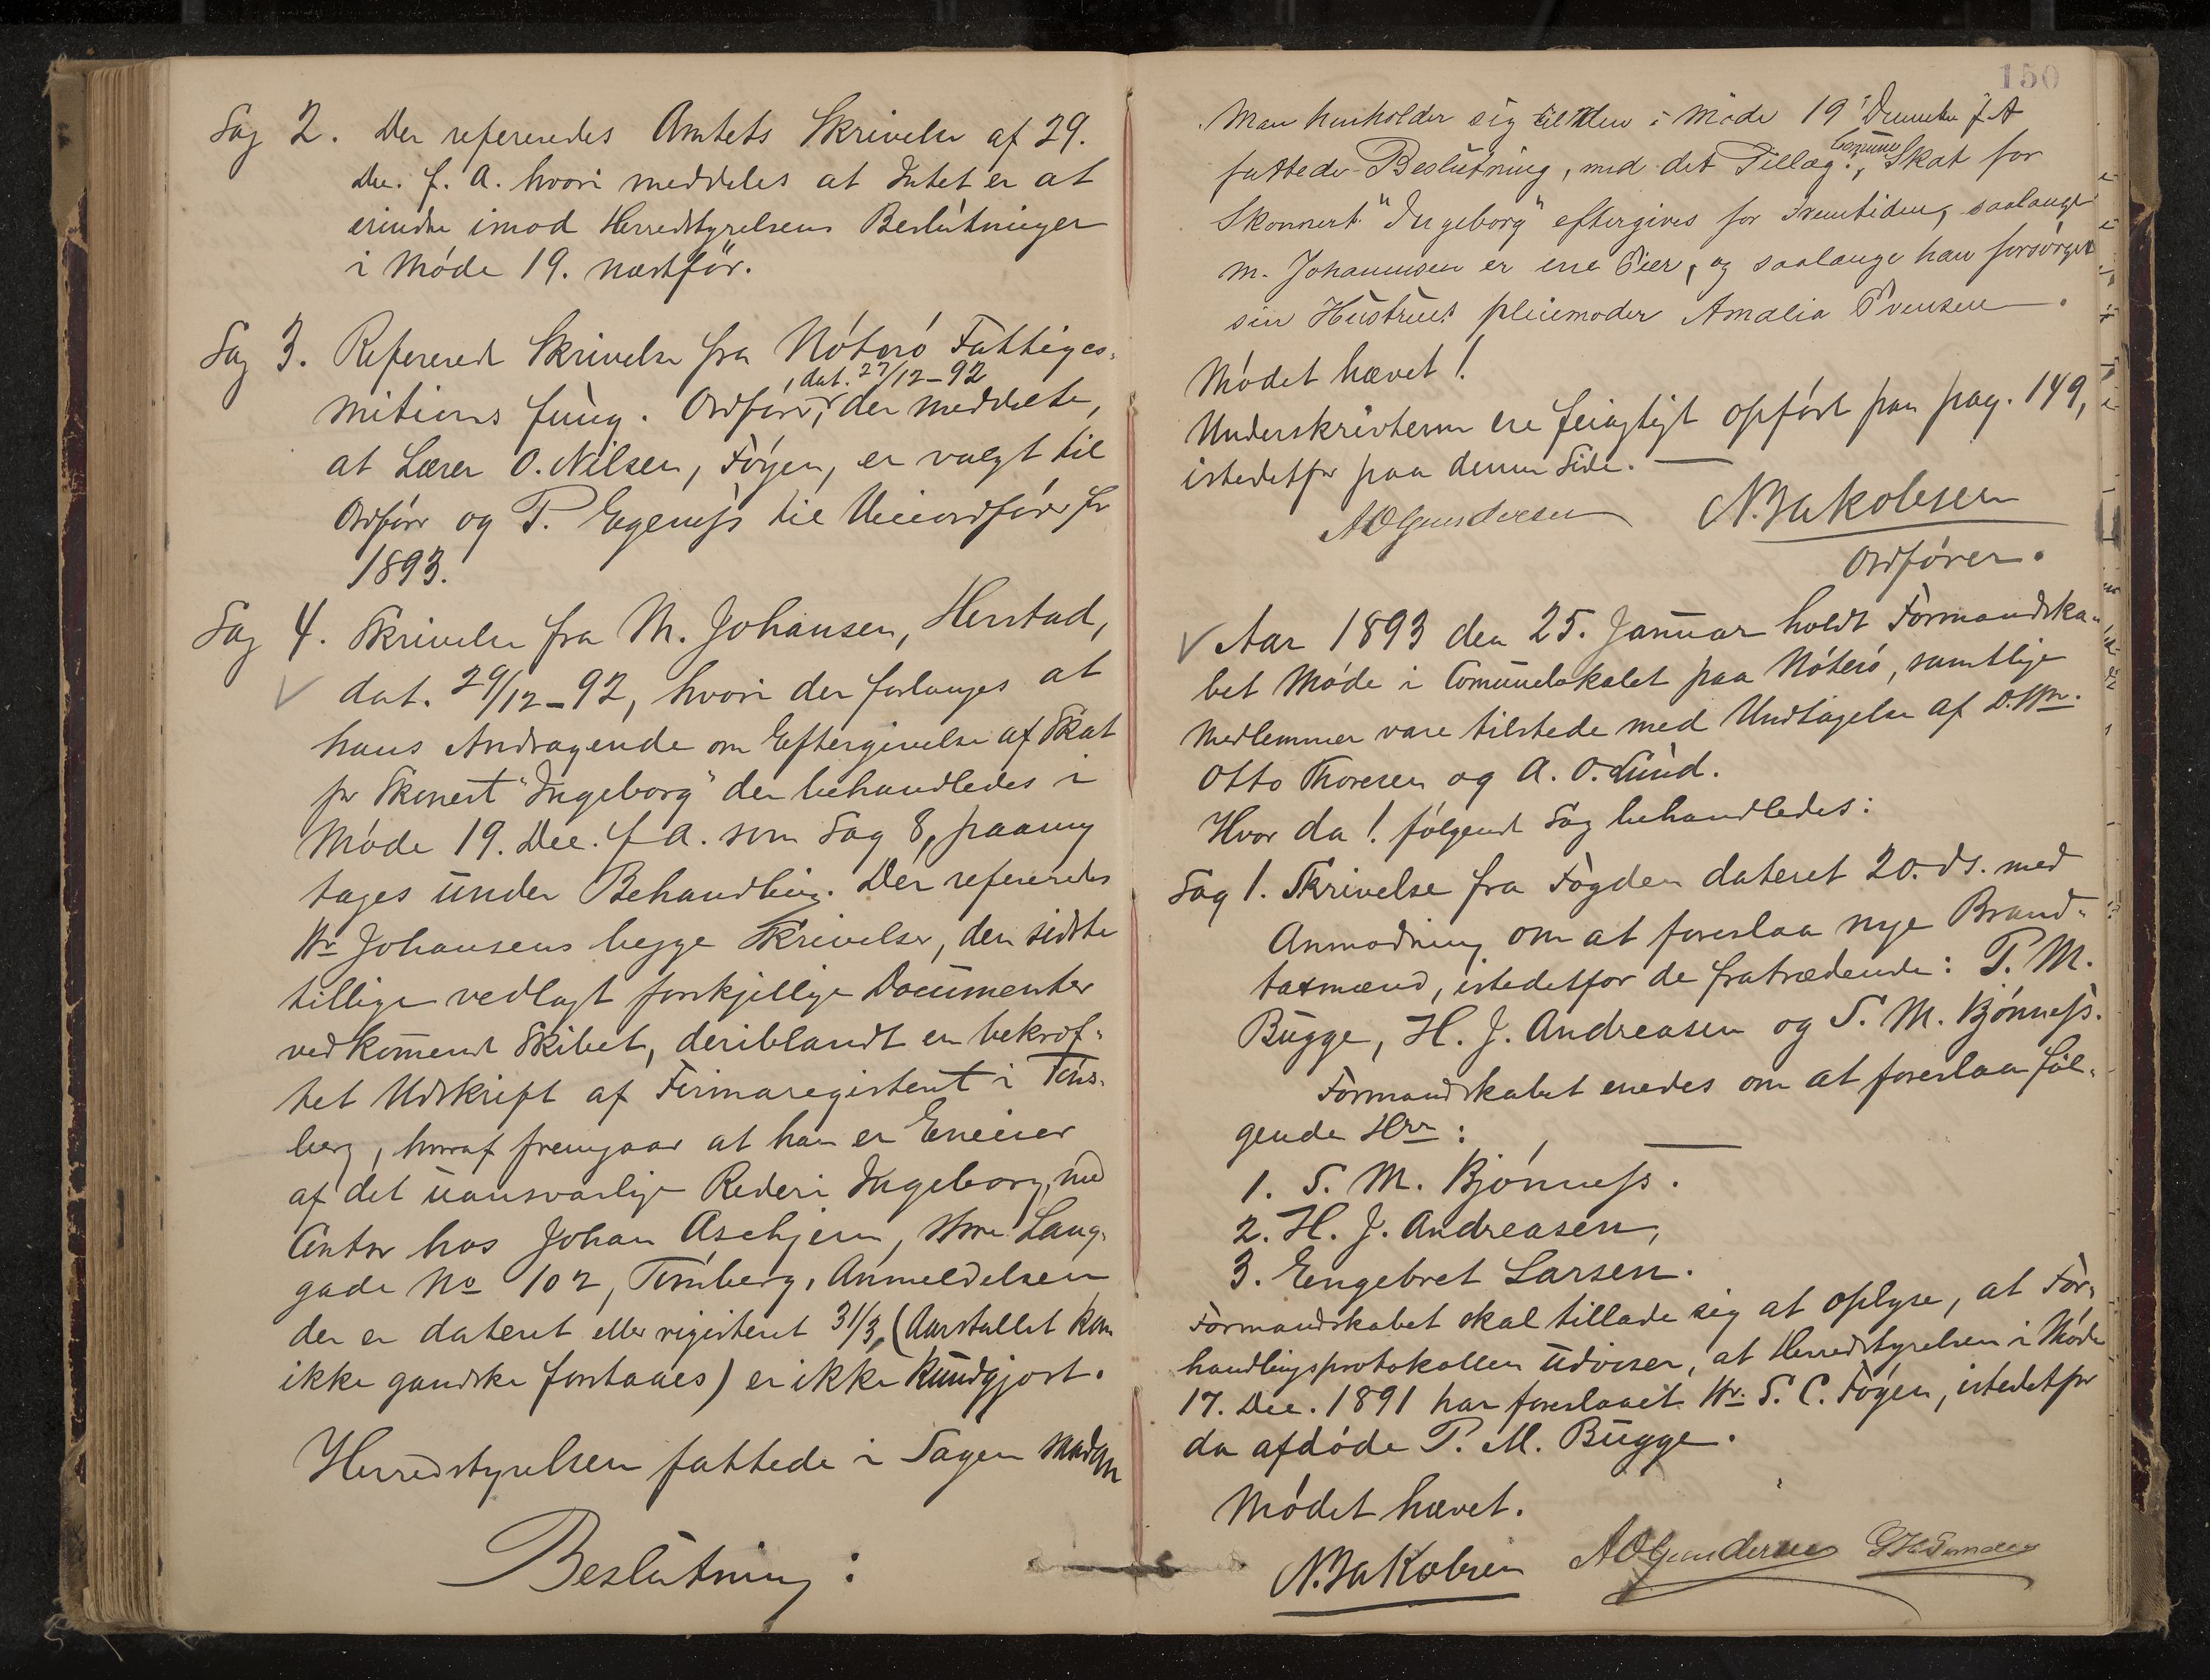 Sag 2. Der refereredes Amtets Skrivelse af 29.
Dec. f. A. hvori meddeles at Intet er at
erindre imod Herredstyrelsens Beslutninger
i Møde 19. næstfør.
Sag 3. Refereret Skrivelse fra Nøterø Fattigco-
mitions fung. Ordfører, dat. 27/12-92 der meddelte,
at Lærer O. Nilsen, Føyen, er valgt til
Ordfører og P. Egenæss til Viceordfører for
1893.
Sag 4. Skrivelse fra M. Johansen, Herstad,
dat. 29/12-92, hvori der forlanges at
hans Andragende om Eftergivelse af Skat
for Skonert "Ingeborg" der behandledes i
Møde 19. Dec. f. A. som Sag 8, paany
tages under Behandling. Der refereredes
Hr Johansens begge Skrivelser, den sidste
tillige vedlagt forskjellige Documenter
vedkomende Skibet, deriblandt en bekræf-
tet Udskrift af Firmaregisteret i Tøns-
berg, hvoraf fremgaar at han er Eneeier
af det uansvarlige Rederi Ingeborg, med
Contor hos Johan Aschjem, Store Lang-
gade No 102, Tønsberg, Anmeldelsen
der er dateret eller registeret 31/3, (Aarstallet kan
ikke gandske forstaaes) er ikke kundgjort.
Herredstyrelsen fattede i Sagen saadan
Beslutning:
150
Man henholder sig til den i Møde 19 December f. A
fattede Beslutning, med det Tillæg: Comune Skat for
Skonnert "Ingeborg" eftergives for Fremtiden, saalænge
M. Johannsen er ene Eier, og saalænge han forsørger
sin Hustrues pleiemoder Amalia Svensen.
Mødet hævet!
Underskrivterne ere feiagtigt opført paa pag. 149,
istedetfor paa denne Side.
A O Gundersen N. Jakobsen
Ordfører.
Aar 1893 den 25. Januar holdt Formandska-
bet Møde i Comunelokalet paa Nøterø, samtlige
Medlemmer vare tilstede med Undtagelse af D.Hrr.
Otto Thoresen og A. O. Lund.
Hvor da! følgende Sag behandledes:
Sag 1. Skrivelse fra Fogden dateret 20. ds. med
Anmodning om at foreslaa nye Brand-
taxmænd, istedetfor de fratrædende: P. M.
Bugge, H. J. Andreasen og S. M. Bjønness.
Formandskabet enedes om at foreslaa føl-
gende Hrr:
1. S. M. Bjønness.
2. H. J. Andreasen,
3. Engebret Larsen.
Formandskabet skal tillade sig at oplyse, at For-
handlingsprotokollen udviser, at Herredstyrelsen i Møde
17. Dec. 1891 har foreslaaet Hr. S. C. Føyen, istedetfor
da afdøde P. M. Bugge.
Mødet hævet.
N. Jakobsen A O Gundersen